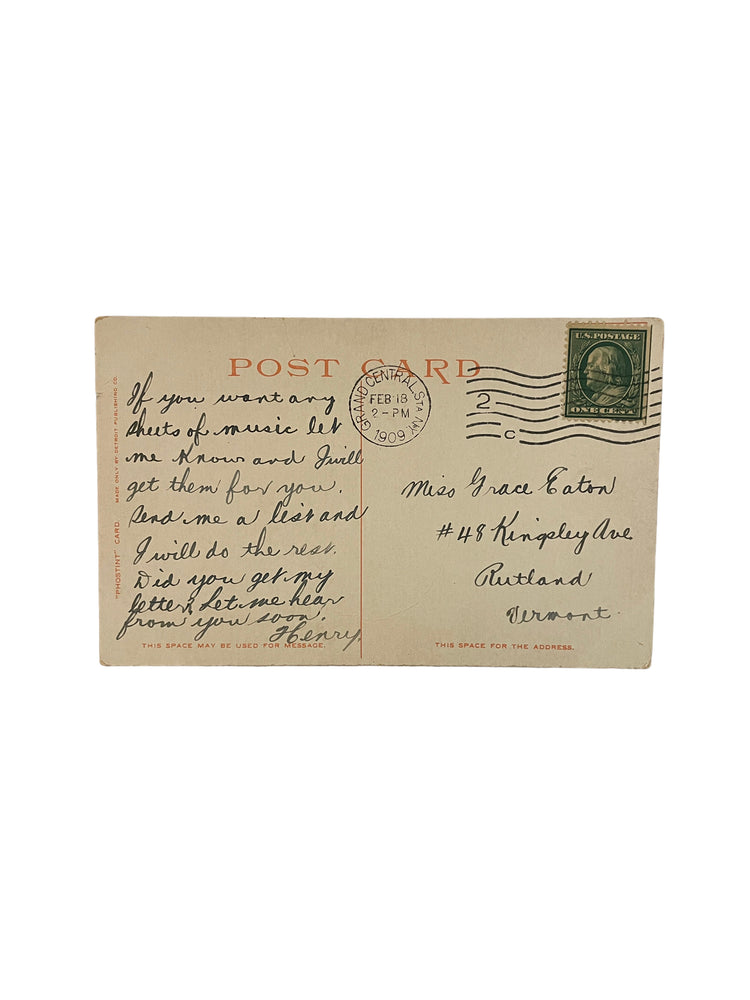 POST CARD
If you want any
sheets of music let
me know and I will
get them for you.
Send me a list and
I will do the rest.
Did you get my
letter? Let me hear
from you soon.
Henry.
THIS SPACE MAY BE USED FOR MESSAGE.
"PHOSTINT" CARD. MADE ONLY BY DETROIT PUBLISHING CO.
GRAND CENTRAL STA. N.Y.
FEB 18
2-PM
1909
2
C
U.S. POSTAGE
ONE CENT
Miss Grace Eaton
#48 Kingsley Ave
Rutland
Vermont.
THIS SPACE FOR THE ADDRESS.